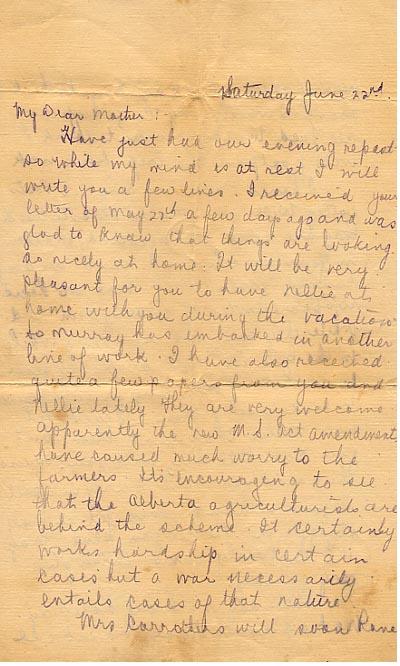 Saturday June 22nd.
My Dear Mother:-
Have just had our evening repast
so while my mind is at rest I will
write you a few lines. I received your
letter of May 27th a few days ago and was
glad to know that things are looking
so nicely at home. It will be very
pleasant for you to have Nellie at
home with you during the vacation
so Murray has embarked in another
line of work. I have also received
quite a few papers from you and
Nellie lately they are very welcome
apparently the new M.S. Act amendment
have caused much worry to the
farmers. Its encouraging to see
that the Alberta agriculturists are
behind the scheme. It certainly
works hardship in certain
cases but a war necessarily
entails cases of that nature
Mrs Carrothers will soon have